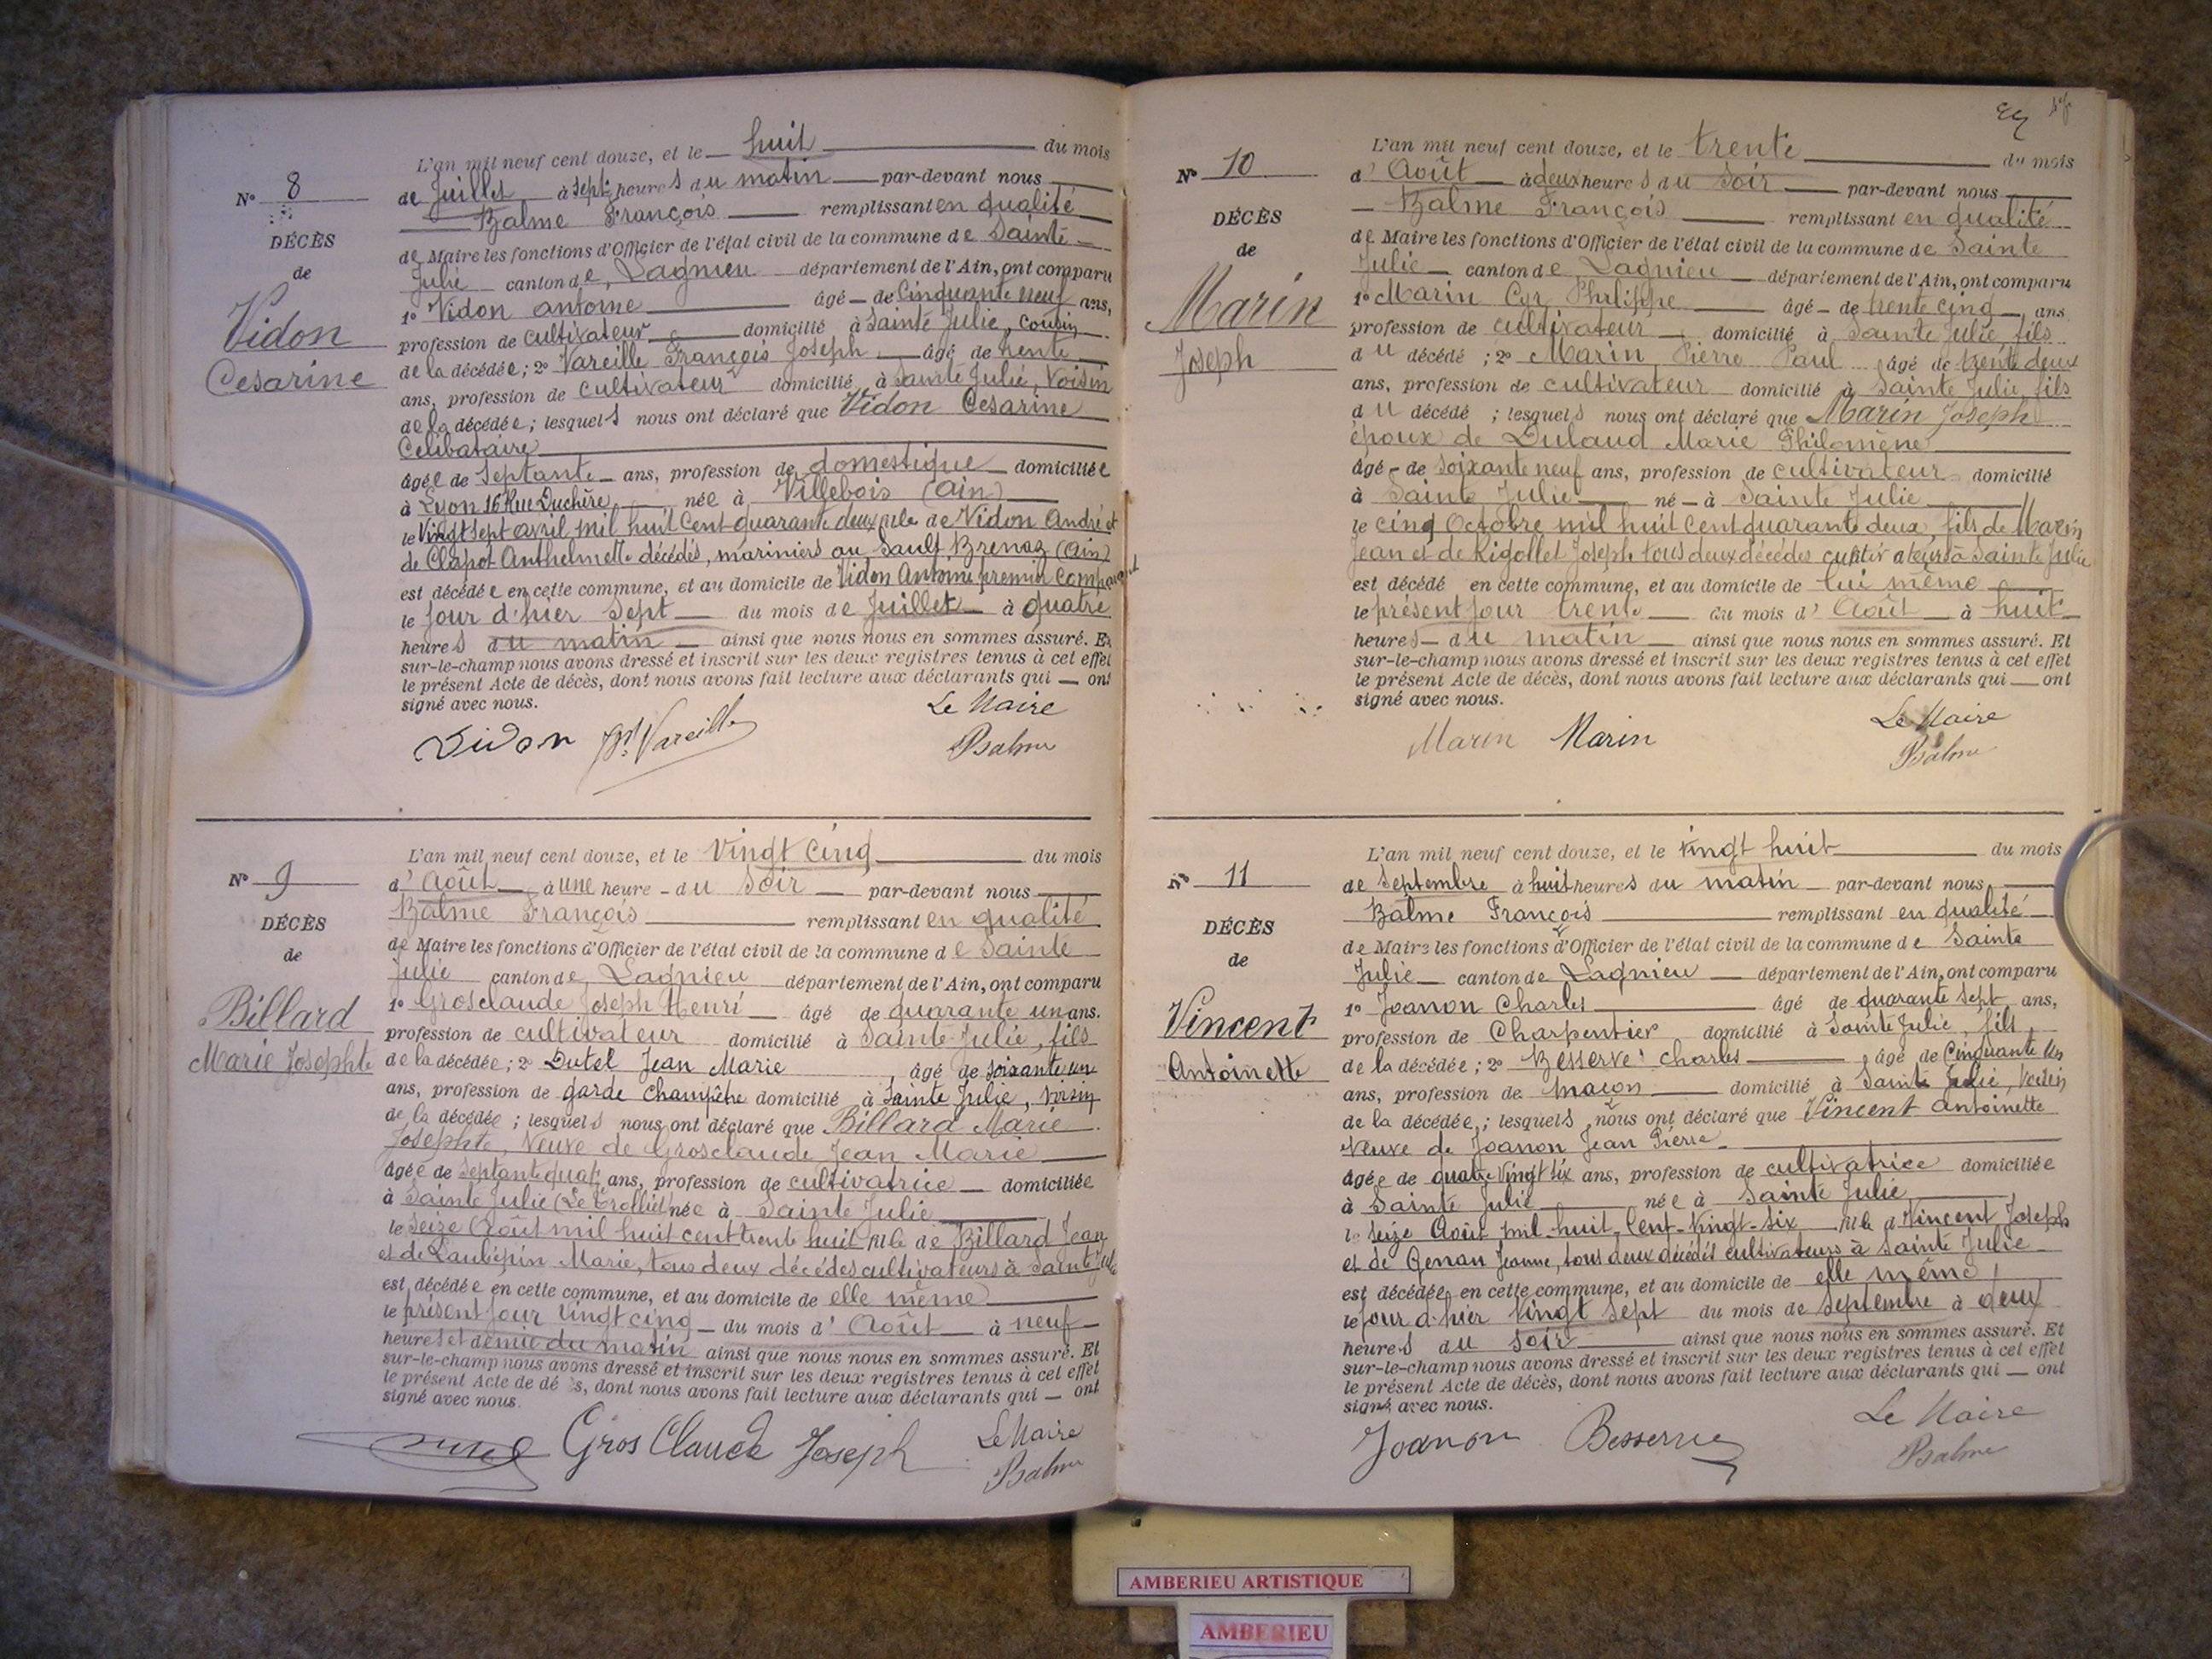 L'an mil neuf cent douze, et le huit du mois
N° 8
de Juillet à sept heures du matin par-devant nous
Balme François remplissant en qualité
DÉCÈS
de Maire les fonctions d'Officier de l'état civil de la commune de Sainte
de
Julie canton de Lagnieu département de l'Ain, ont comparu
1° Vidon antoine âgé de Cinquante neuf ans,
Vidon
profession de cultivateur domicilié à Sainte Julie, cousin
Cesarine
de la décédée; 2° Vareille François Joseph âgé de trente
ans, profession de cultivateur domicilié à Sainte Julie, Voisin
de la décédée; lesquels nous ont déclaré que Vidon Cesarine
Celibataire
âgée de Septante ans, profession de domestique domiciliée
à Lyon 16 Rue Duchère née à Villebois (Ain)
le Vingt sept avril mil huit Cent quarante deux, fille de Vidon André et
de Clapot Anthelmette décédés, mariniers au Sault Brenaz (Ain)
est décédée en cette commune, et au domicile de Vidon Antoine premier comparant
le Jour d'hier Sept du mois de Juillet à quatre
heures du matin ainsi que nous nous en sommes assuré. Et
sur-le-champ nous avons dressé et inscrit sur les deux registres tenus à cet effet
le présent Acte de décès, dont nous avons fait lecture aux déclarants qui ont
signé avec nous.
Le Maire
Vidon Vareille Balme
L'an mil neuf cent douze, et le vingt cinq du mois
N° 9
d'Août à une heure du Soir par-devant nous
Balme François remplissant en qualité
DÉCÈS
de Maire les fonctions d'Officier de l'état civil de la commune de Sainte
de
Julie canton de Lagnieu département de l'Ain, ont comparu
1° Grosclaude Joseph Henri âgé de quarante un ans.
Billard
profession de cultivateur domicilié à Sainte Julie, fils
Marie Josephte
de la décédée; 2° Dutel Jean Marie âgé de soixante un
ans, profession de garde Champêtre domicilié à Sainte Julie, voisin
de la décédée; lesquels nous ont déclaré que Billard Marie
Josephte, Veuve de Grosclaude Jean Marie
âgée de septante quatre ans, profession de cultivatrice domiciliée
à Sainte Julie (Le Trolliet) née à Sainte Julie
le Seize Août mil huit cent trente huit fille de Billard Jean
et de Laubépin Marie, tous deux décédés cultivateurs à Sainte Julie
est décédée en cette commune, et au domicile de elle même
le présent Jour vingt cinq du mois d'Août à neuf
heures et demie du matin ainsi que nous nous en sommes assuré. Et
sur-le-champ nous avons dressé et inscrit sur les deux registres tenus à cet effet
le présent Acte de dé s, dont nous avons fait lecture aux déclarants qui ont
signé avec nous.
Le Maire
Gros Claude Joseph Balme
L'an mil neuf cent douze, et le trente du mois
N° 10
d'Août à deux heures du Soir par-devant nous
Balme François remplissant en qualité
DÉCÈS
de Maire les fonctions d'Officier de l'état civil de la commune de Sainte
de
Julie canton de Lagnieu département de l'Ain, ont comparu
1° Marin Cyr Philippe âgé de trente cinq ans
Marin
profession de cultivateur domicilié à Sainte Julie, fils
Joseph
du décédé; 2° Marin Pierre Paul âgé de trente deux
ans, profession de cultivateur domicilié à Sainte Julie, fils
du décédé; lesquels nous ont déclaré que Marin Joseph
époux de Dulaud Marie Philomène
âgé de soixante neuf ans, profession de cultivateur domicilié
à Sainte Julie né à Sainte Julie
le cinq Octobre mil huit Cent quarante deux, fils de Marin
Jean et de Rigollet Joseph tous deux décédés cultivateurs à Sainte Julie
est décédé en cette commune, et au domicile de lui même
le présent Jour trente du mois d'Août à huit
heures du matin ainsi que nous nous en sommes assuré. Et
sur-le-champ nous avons dressé et inscrit sur les deux registres tenus à cet effet
le présent Acte de décès, dont nous avons fait lecture aux déclarants qui ont
signé avec nous.
Le Maire
Marin Marin Balme
L'an mil neuf cent douze, et le vingt huit du mois
N° 11
de Septembre à huit heures du matin par-devant nous
Balme François remplissant en qualité
DÉCÈS
de Maire les fonctions d'Officier de l'état civil de la commune de Sainte
de
Julie canton de Lagnieu département de l'Ain, ont comparu
1° Joanon Charles âgé de quarante sept ans,
Vincent
profession de Charpentier domicilié à Sainte Julie, fils
Antoinette
de la décédée; 2° Besserve Charles âgé de Cinquante un
ans, profession de maçon domicilié à Sainte Julie, Voisin
de la décédée; lesquels nous ont déclaré que Vincent Antoinette
Veuve de Joanon Jean Pierre
âgée de quatre Vingt six ans, profession de cultivatrice domiciliée
à Sainte Julie née à Sainte Julie
le seize Août mil huit Cent Vingt-six fille d Vincent Joseph
et de Genan Jeanne, tous deux décédés cultivateurs à Sainte Julie
est décédée en cette commune, et au domicile de elle même
le jour d'hier vingt sept du mois de Septembre à deux
heures du soir ainsi que nous nous en sommes assuré. Et
sur-le-champ nous avons dressé et inscrit sur les deux registres tenus à cet effet
le présent Acte de décès, dont nous avons fait lecture aux déclarants qui ont
signé avec nous.
Le Maire
Joanon Besserve Balme
AMBERIEU ARTISTIQUE
AMBERIEU